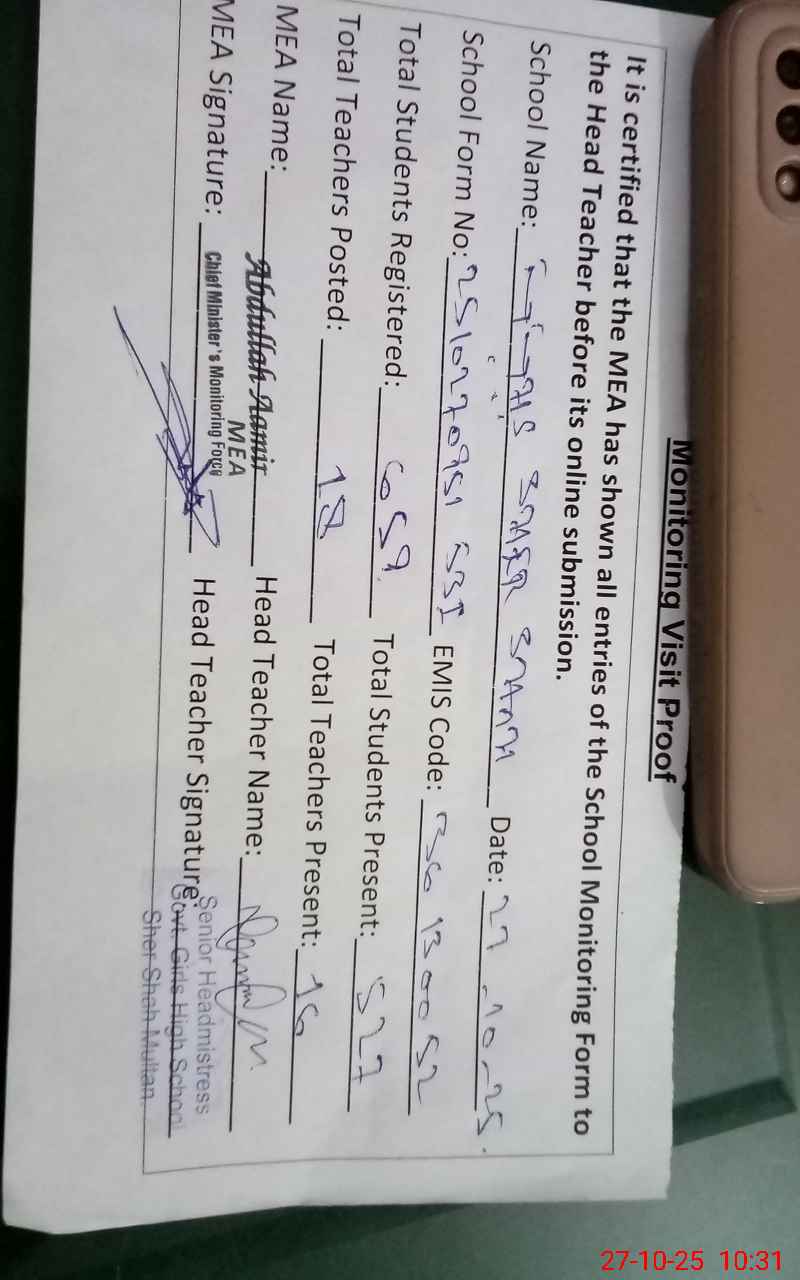 Monitoring Visit Proof
It is certified that the MEA has shown all entries of the School Monitoring Form to
the Head Teacher before its online submission.
School Name: Date: 27-10-25.
School Form No: EMIS Code:
Total Students Registered: 659 Total Students Present: 527
Total Teachers Posted: 18 Total Teachers Present: 16
MEA Name: Abdullah Aamir Head Teacher Name:
MEA
MEA Signature: Chief Minister's Monitoring Force Head Teacher Signature:
Senior Headmistress
Govt. Girls High School
Sher Shah Multan.
27-10-25 10:31